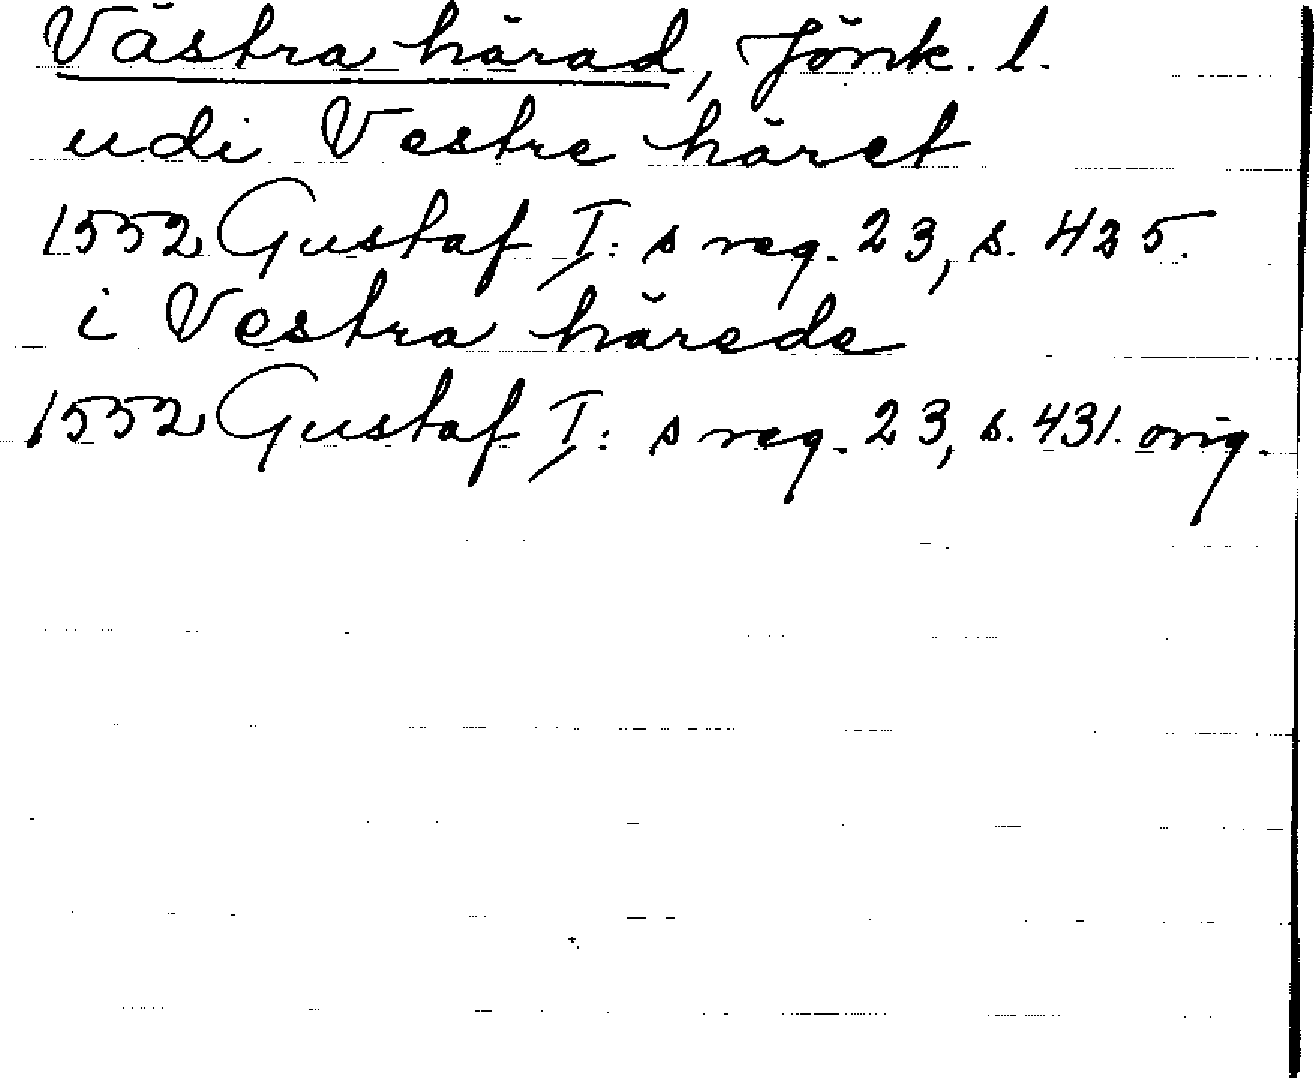 Västra härad, Jönk. l.
udi Vestre häret
1552 Gustaf I:s reg. 23, s. 425.
i Vestra härede
1552 Gustaf I:s reg. 23, s. 431. orig.